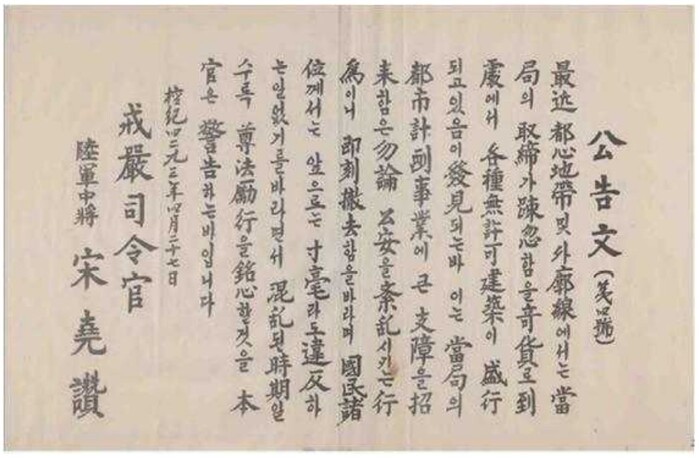 公告文 (第四號)
最近 都心地帶 및 外廓線에서는 當
局의 取締가 疎忽함을 奇貨로 到
處에서 各種無許可建築이 盛行
되고있음이 發見되는바 이는 當局의
都市計劃事業에 큰 支障을 招
来함은 勿論 公安을 紊乱시키는 行
為이니 即刻 撤去함을바라며 國民諸
位께서는 앞으로는 寸毫라도 違反하
는일없기를바라면서 混乱된 時期일
수록 尊法勵行을 銘心할것을 本
官은 警告하는바입니다
檀紀四二九三年四月二十七日
戒嚴司令官
陸軍中將 宋堯讚